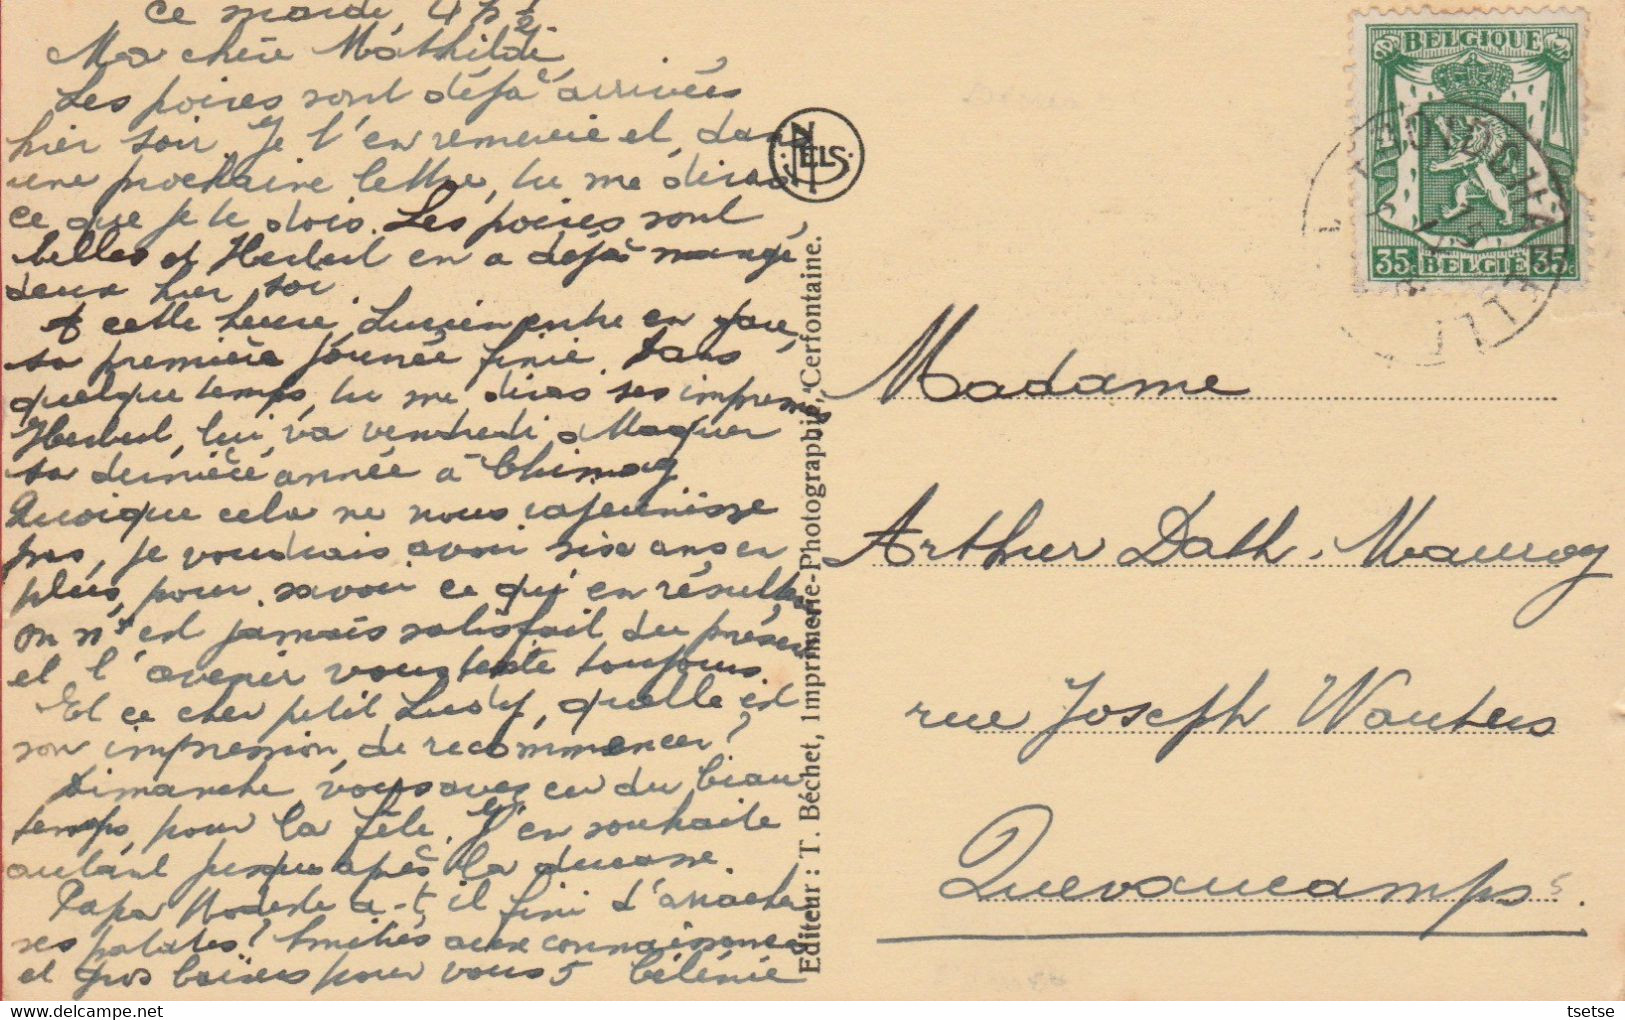 Ce mardi, 4 h ½
Ma chère Mathilde,
Les poires sont déjà arrivées
hier soir. Je t'en remercie et, dans
une prochaine lettre, tu me diras
ce que je te dois. Les poires sont
belles et Herbert en a déjà mangé
deux hier soir.
A cette heure, Lucien entre en gare,
sa première journée finie. Dans
quelque temps, tu me diras ses impress
Herbert, lui, va vendredi, attaquer
sa dernière année à Chimay
Quoique cela ne nous rajeunisse
pas, je voudrais avoir six ans en
plus, pour savoir ce qui en résultera
On n'est jamais satisfait du présent
et l'avenir vous tente toujours.
Et ce cher petit Lucty, quelle est
son impression, de recommencer?
Dimanche, vous avez eu du beau
temps, pour la fête. J'en souhaite
autant jusqu'après la ducasse.
Papa Modeste a-t-il fini d'arracher
ses patates? Amitiés aux connaissances
et gros baisers pour vous 5 Célénie
NELS
Editeur : T. Béchet, Imprimerie-Photographie, Cerfontaine.
BELGIQUE
35c BELGIE 35c
Madame
Arthur Dath-Mauroy
rue Joseph Wauters
Quevaucamps
5
delcampe.net
tsetse